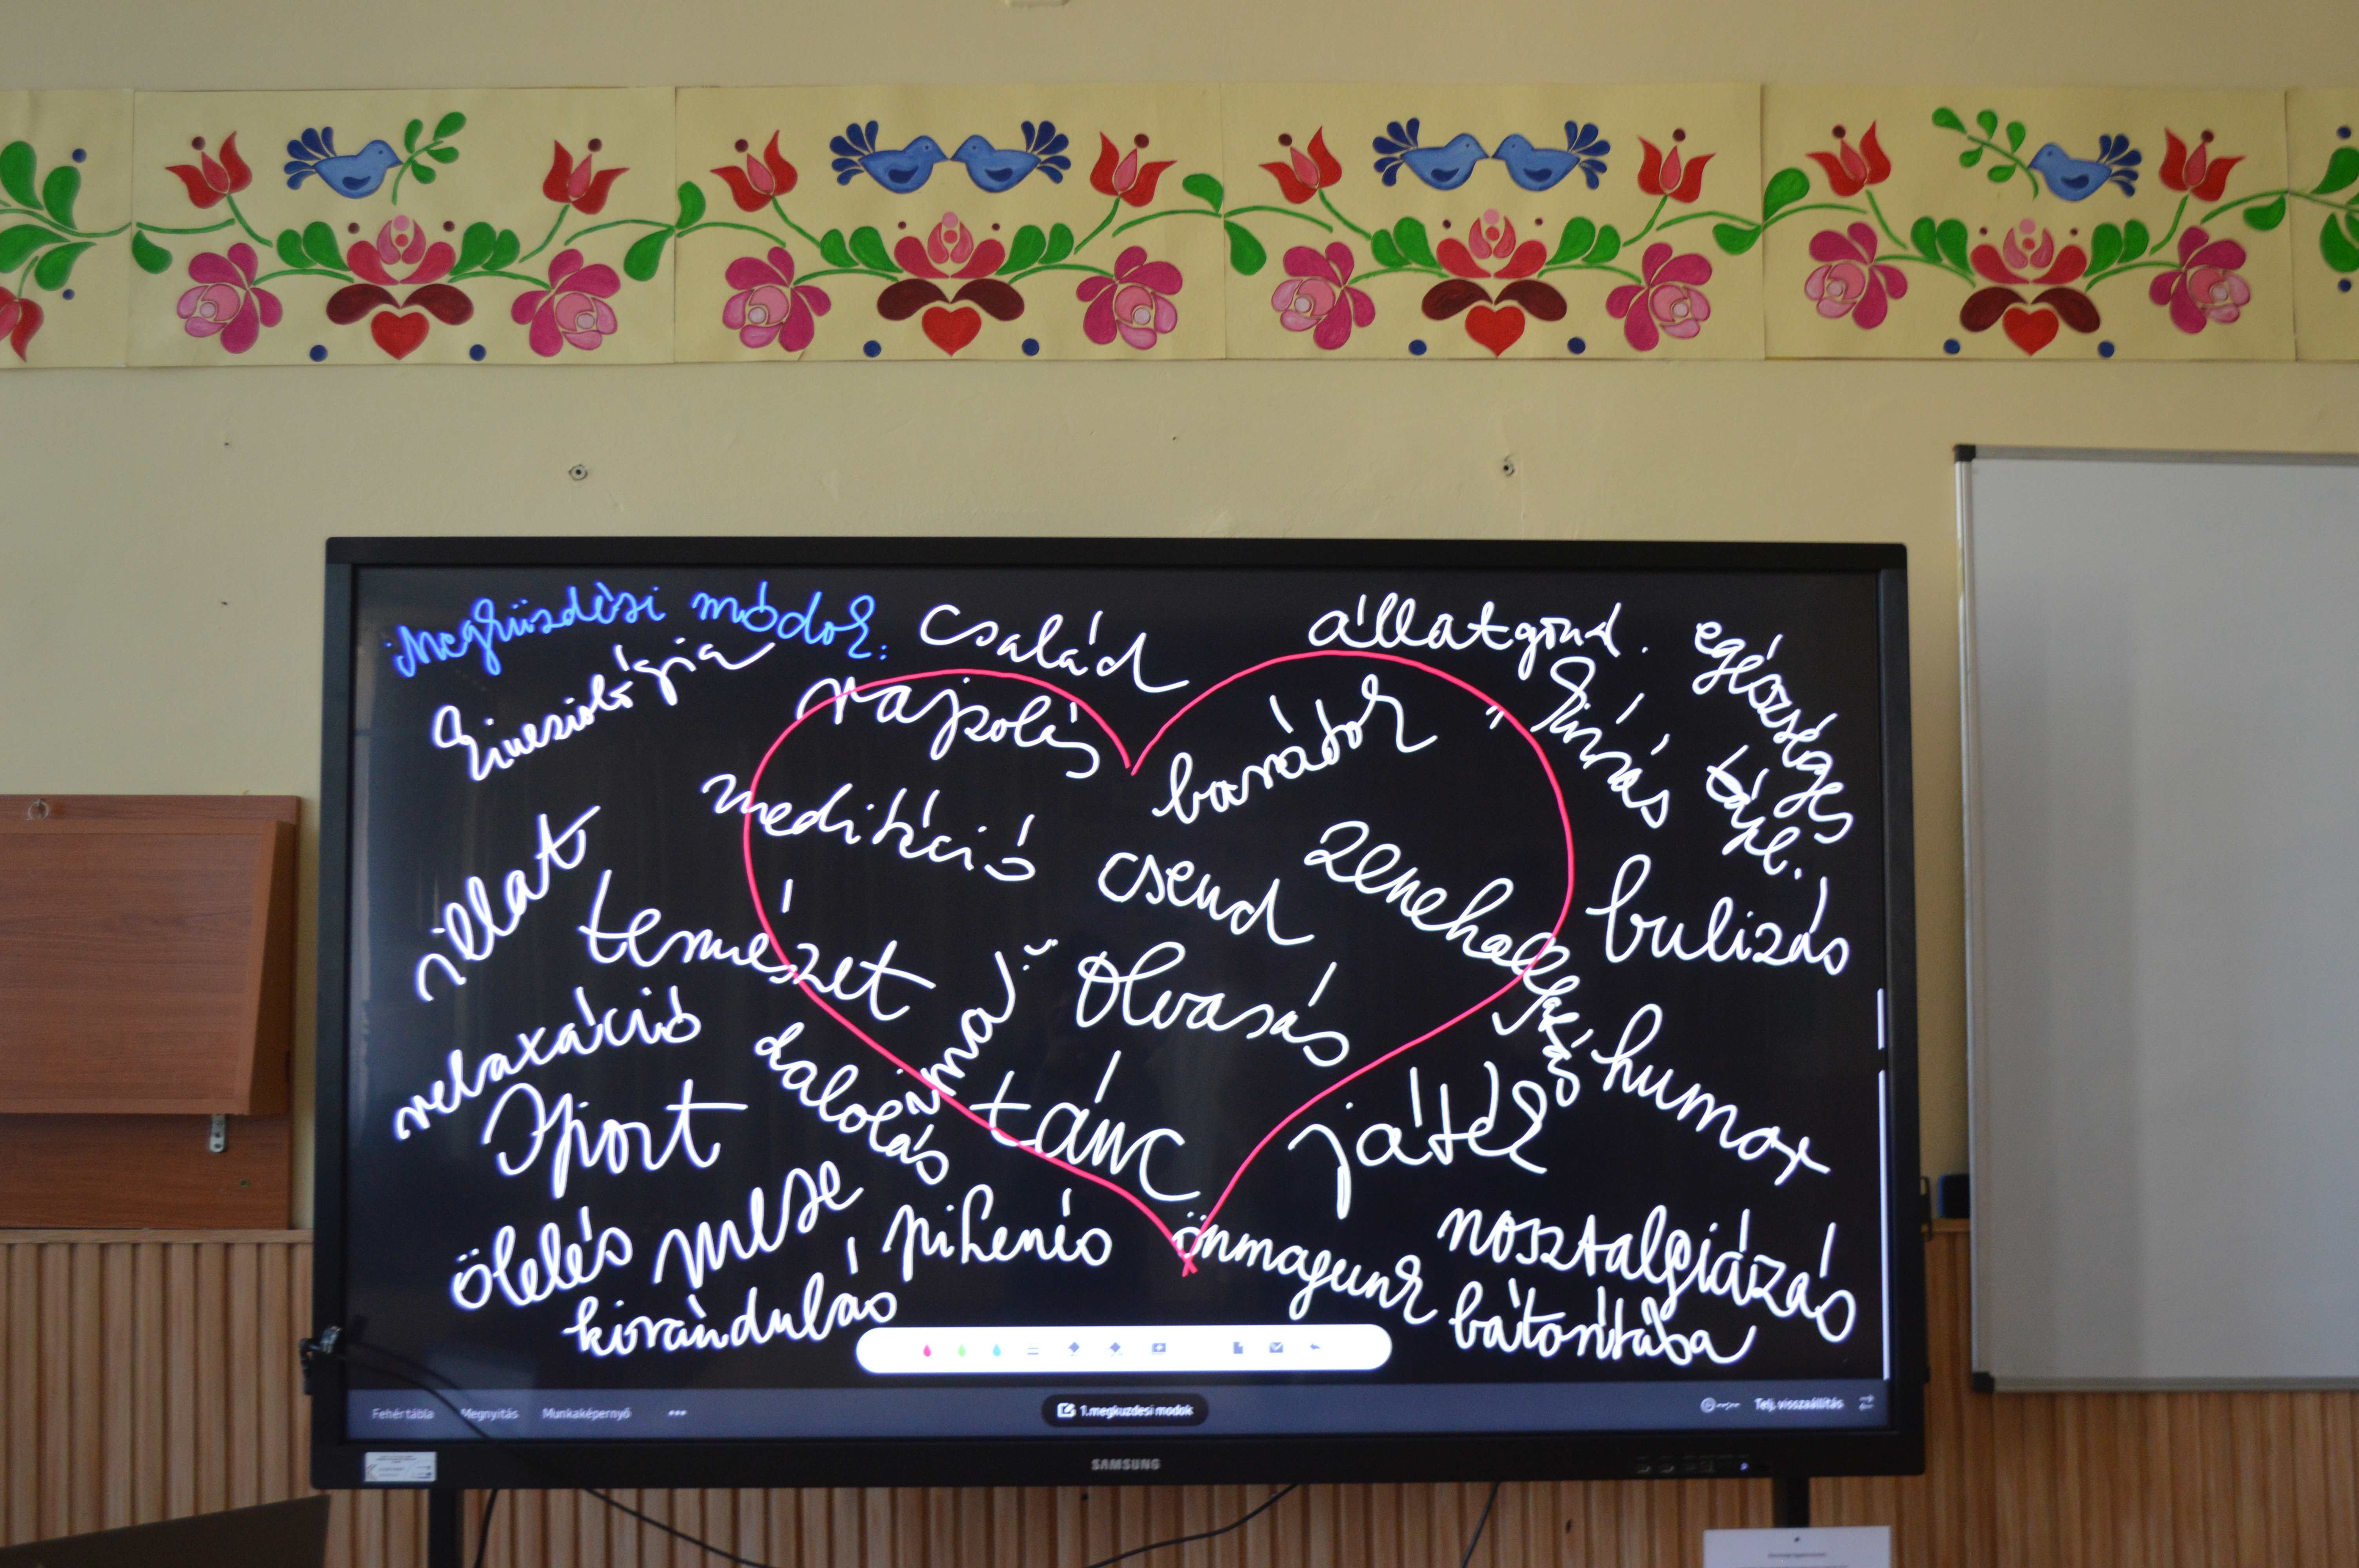 Megküzdési módok:
család
állatgond.
egészséges
tápl.
kineziológia
rajzolás
barátok
sírás
meditáció
csend
zenehallgatás
bulizás
illat
természet
ima
olvasás
relaxáció
dalolás
tánc
játék
humor
Sport
ölelés
mese
pihenés
önmagunk
bátorítása
nosztalgiázás
kirándulás
Fehértábla
Megnyitás
Munkaképernyő
1.megkuzdesi modok
Telj. visszaállítás
SAMSUNG